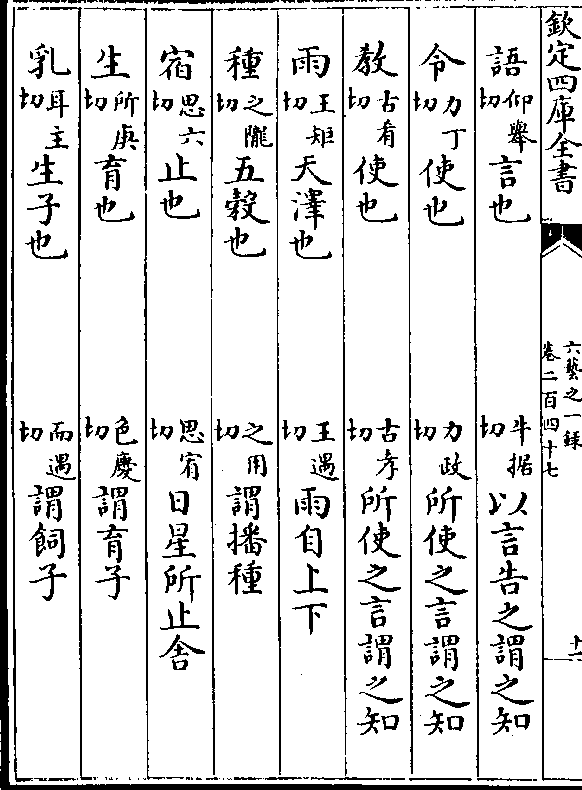 欽定四庫全書
六藝之一錄
卷二百四十七
十二
語仰舉切言也 牛据切以言告之謂之知
令力丁切使也 力政切所使之言謂之知
教古肴切使也 古孝切所使之言謂之知
雨王矩切天澤也 王遇切雨自上下
種之隴切五穀也 之用切謂播種
宿思六切止也 思宥切日星所止舍
生所庚切育也 色慶切謂育子
乳耳主切生子也 而遇切謂飼子